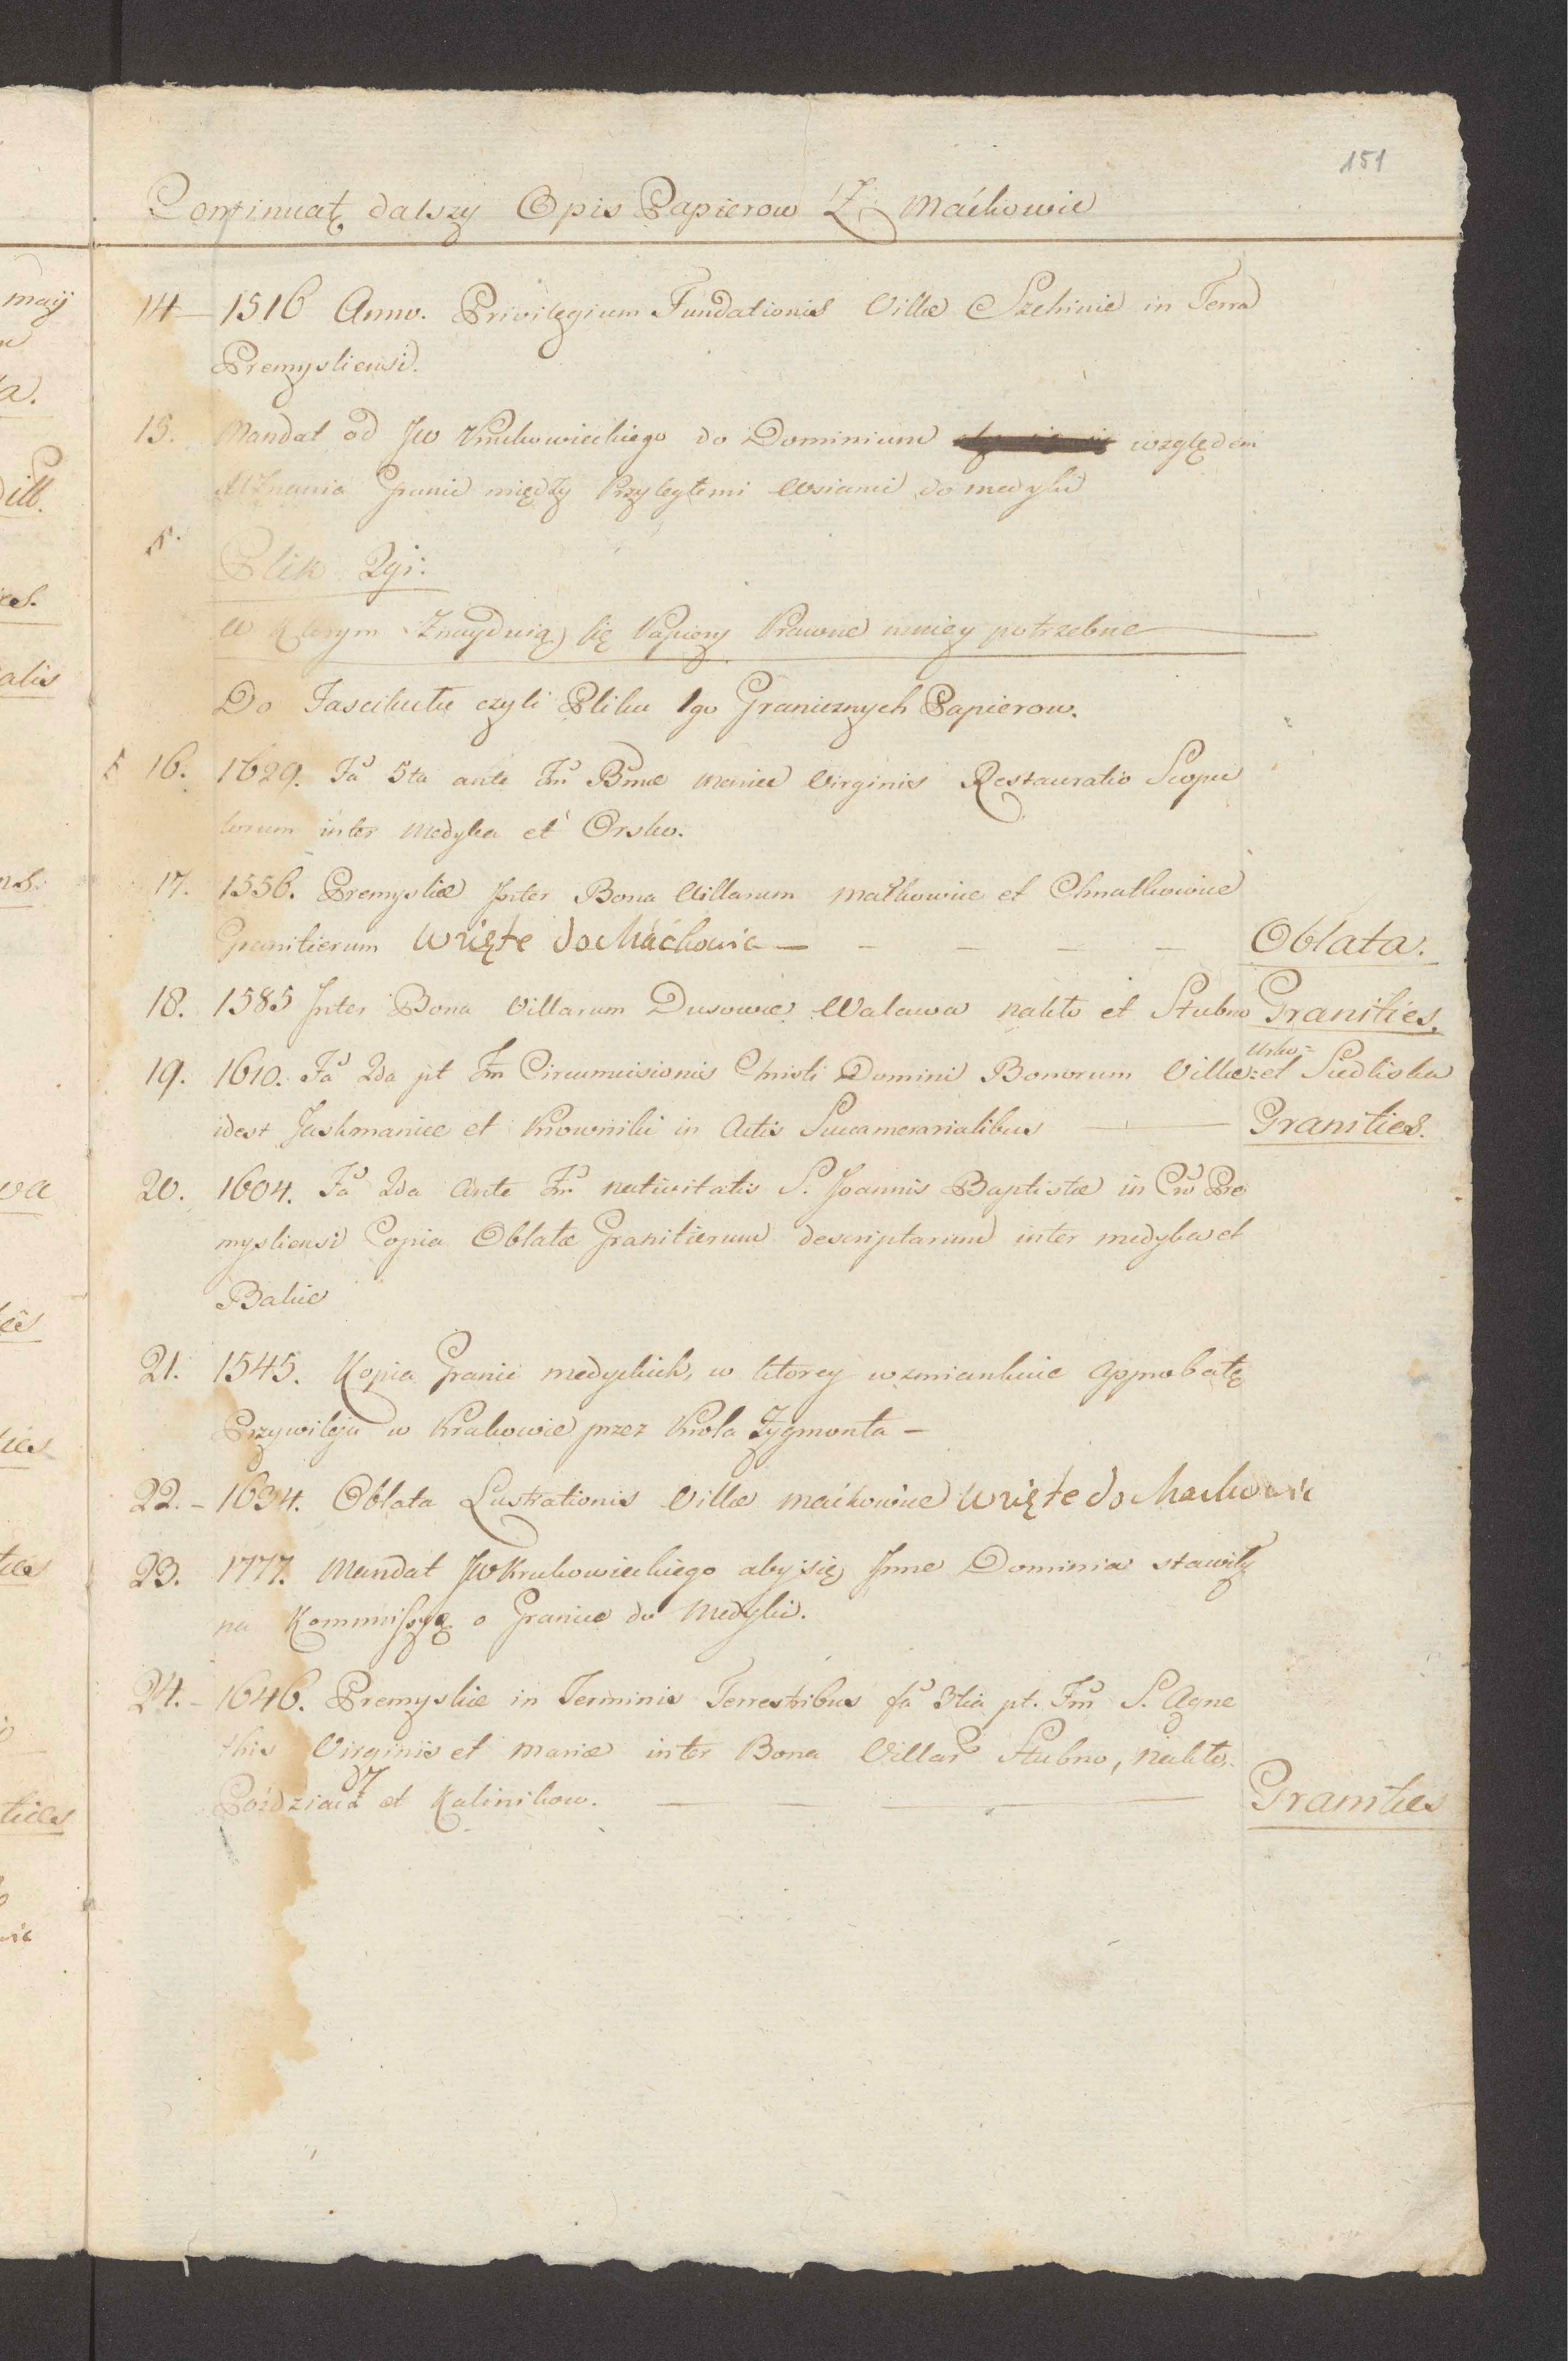 151
Continuatę dalszy Opis Papierow Z Maćkowic
14 — 1516 Anno. Privilegium Fundationis Villæ Szehinie in Terra
Premysliensi.
15. Mandat od JW Krukowieckiego do Dominium względem
Uznania Granic między Przyległemi Wsiami do Medyki
Plik 2gi.
W Ktorym Znayduią się Papiery Prawne mniey potrzebne
Do Fascikułu czyli Pliku 1go Granicznych Papierow.
16. 1629. Fa 5ta ante Fm Bmæ Mariæ Virginis Restauratio Scopu
lorum inter Medyka et Orsko.
17. 1556. Premysliæ Inter Bona Villarum Małkowice et Chnatkowice
Granitierum Wzięte do Maćkowic — — — — — Oblata.
18. 1585 Inter Bona Villarum Dusowce Walawa Nakło et Stubno Granities.
19. 1610. Fa 2da pt Fm Circumcisionis Christi Domini Bonorum Villæ: Ursko= et Siedliska
idest Jaskmanice et Krowniki in Actis Succamerarialibus — — Granities.
20. 1604. Fa 2da Ante Fm Nativitatis S. Joannis Baptistæ in Cro Pre
mysliensi Copia Oblatæ Granitierum descriptarum inter Medyka et
Bakie
21. 1545. Kopia Granic Medyckich, w ktorey wzmiankuie Approbatę
Przywileju w Krakowie przez Krola Zygmonta —
22. — 1634. Oblata Lustrationis Villæ Maćkowice Wzięte do Mackowic
23. 1777. Mandat JW Krukowieckiego aby się Inne Dominia stawiły
na Kommissyą o Granice do Medyki.
24. — 1646. Premysliæ in Terminis Terrestribus fa 3tia pt. Fm S. Agne
this Virginis et Mariæ inter Bona Villar Stubno, Nakło,
Pozdziacz et Kalinikow. — — — — Granities